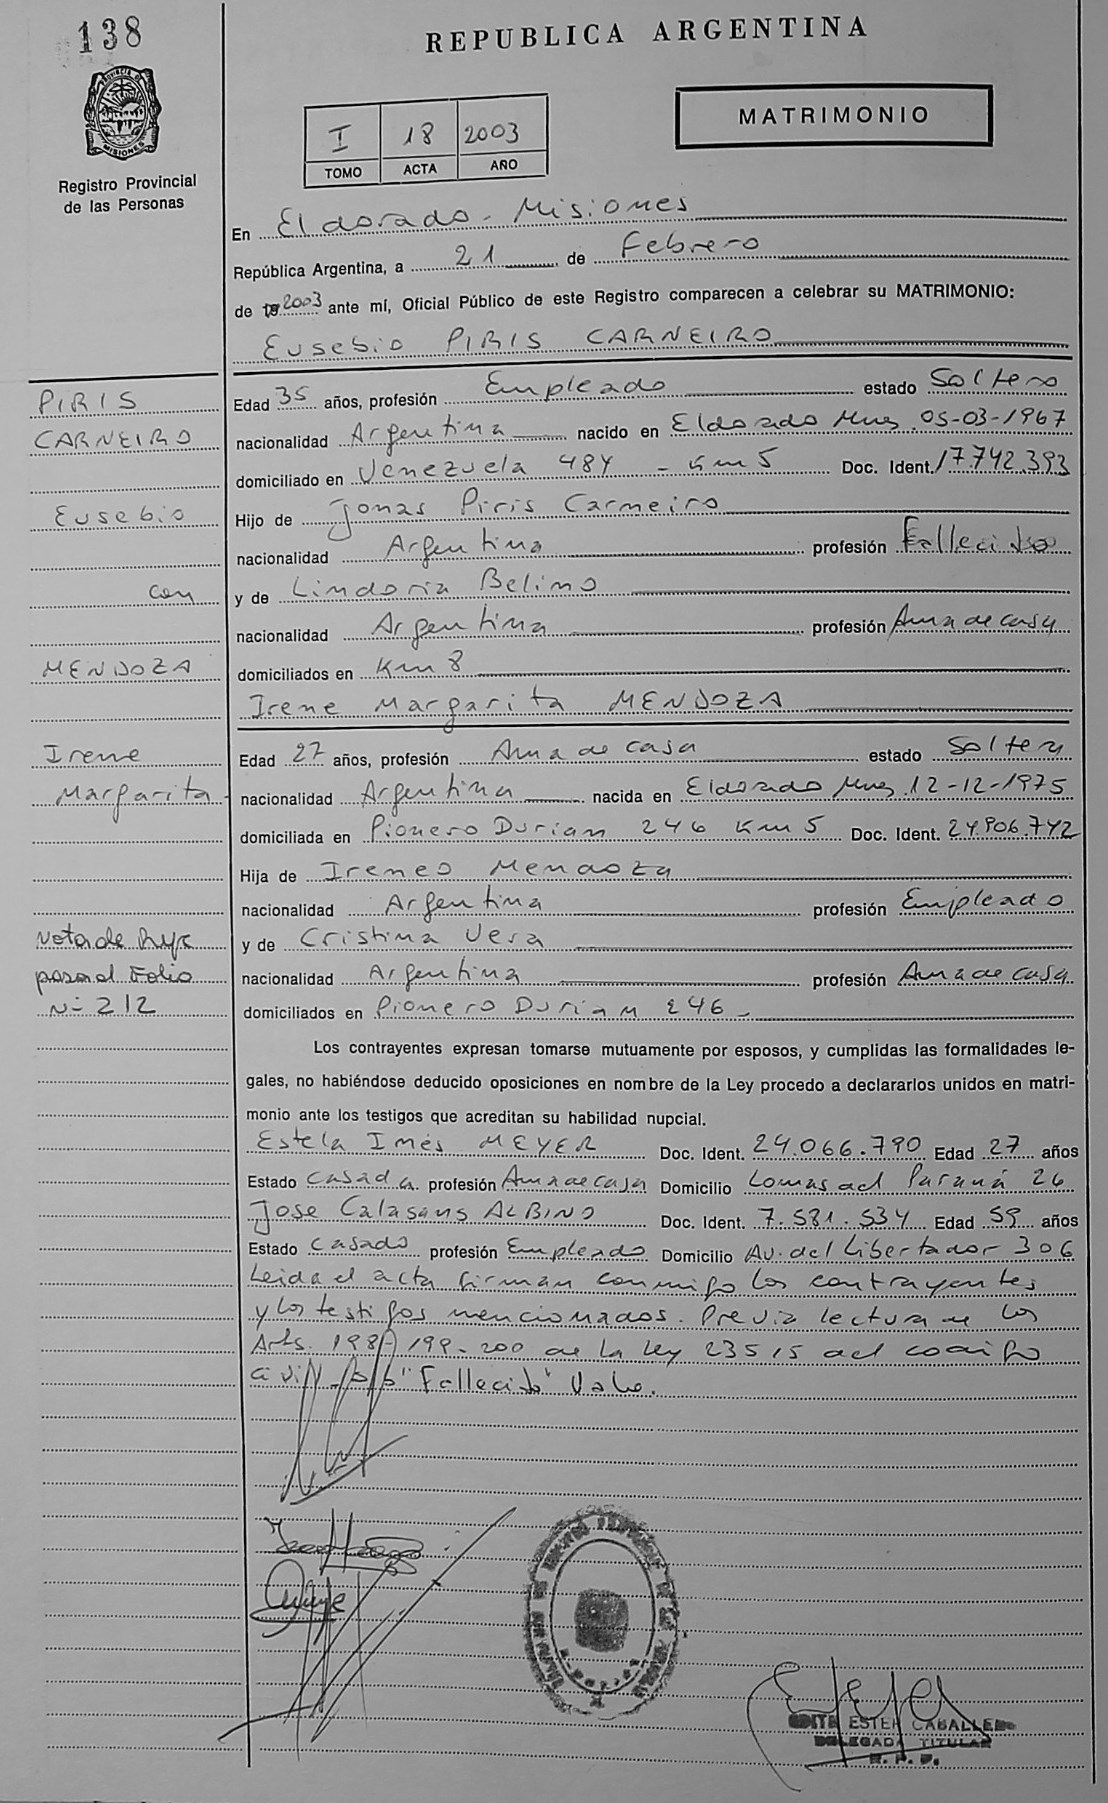 138
REPUBLICA ARGENTINA
PROVINCIA DE MISIONES
Registro Provincial
de las Personas
I 18 2003
TOMO ACTA AÑO
MATRIMONIO
En Eldorado - Misiones
República Argentina, a 21 de Febrero
de 2003 ante mí, Oficial Público de este Registro comparecen a celebrar su MATRIMONIO:
Eusebio PIRIS CARNEIRO
PIRIS
CARNEIRO
Eusebio
con
MENDOZA
Irene
Margarita
Nota de
pasa al Folio
N= 212
Edad 35 años, profesión Empleado estado Soltero
nacionalidad Argentina nacido en Eldorado Mnes 05-03-1967
domiciliado en Venezuela 484 - Km 5 Doc. Ident. 17.742.393
Hijo de Jonas Piris Carneiro
nacionalidad Argentina profesión Fallecido
y de Lindoria Belino
nacionalidad Argentina profesión Ama de casa
domiciliados en Km 8
Irene Margarita MENDOZA
Edad 27 años, profesión Ama de casa estado Soltera
nacionalidad Argentina nacida en Eldorado Mnes 12-12-1975
domiciliada en Pionero Durian 246 Km 5 Doc. Ident. 24.906.742
Hija de Ireneo Mendoza
nacionalidad Argentina profesión Empleado
y de Cristina Vera
nacionalidad Argentina profesión Ama de casa
domiciliados en Pionero Durian 246 -
Los contrayentes expresan tomarse mutuamente por esposos, y cumplidas las formalidades le-
gales, no habiéndose deducido oposiciones en nombre de la Ley procedo a declararlos unidos en matri-
monio ante los testigos que acreditan su habilidad nupcial.
Estela Inés MEYER Doc. Ident. 24.066.790 Edad 27 años
Estado casada profesión Ama de casa Domicilio Lomas del Paraná 26
Jose Calasans ALBINO Doc. Ident. 7.581.534 Edad 59 años
Estado casado profesión Empleado Domicilio Av. del Libertador 306
Leida el acta firman conmigo los contrayentes
y los testigos mencionados. Previa lectura de los
Arts. 198-199-200 de la ley 23515 del codigo
civil "Fallecido" Vale.
EDITH ESTER CABALLERO
DELEGADA TITULAR
R. P. P.